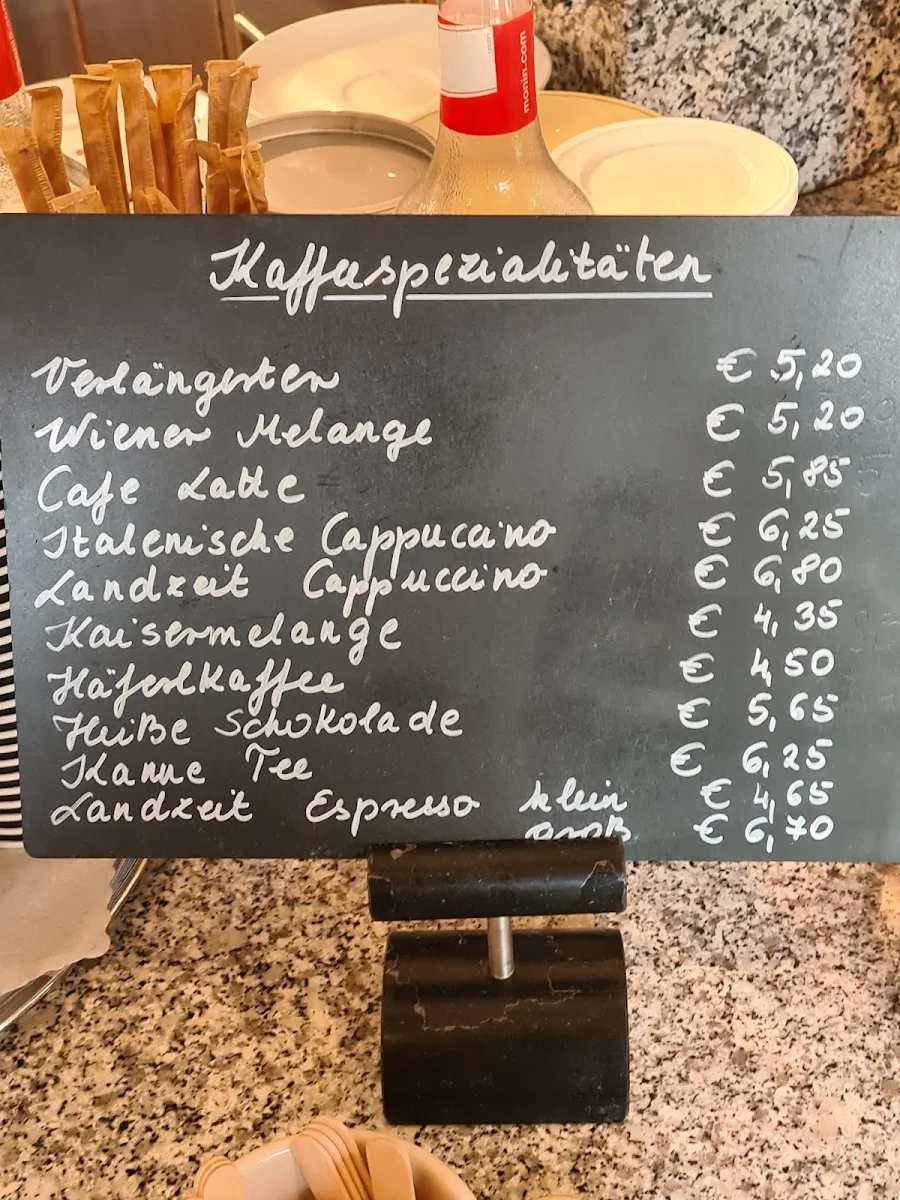 monin.com
Kaffeespezialitäten
Verlängerter € 5,20
Wiener Melange € 5,20
Cafe Latte € 5,85
Italenische Cappuccino € 6,25
Landzeit Cappuccino € 6,80
Kaisermelange € 4,35
Häferlkaffee € 4,50
Heiße Schokolade € 5,65
Kanne Tee € 6,25
Landzeit Espresso klein € 4,65
groß € 6,70